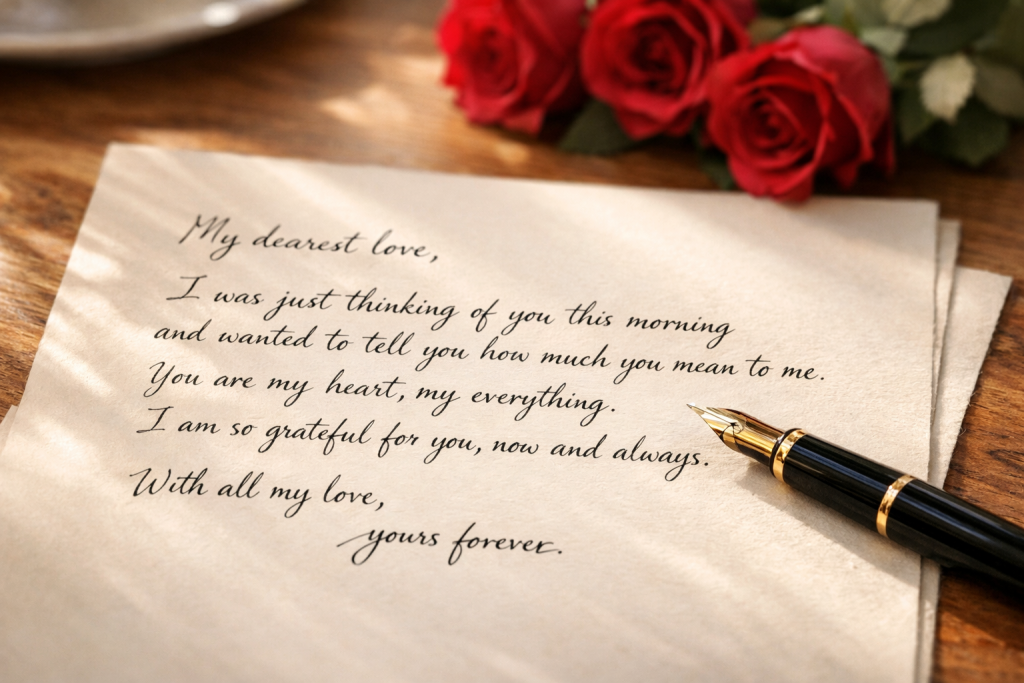 My dearest love,
I was just thinking of you this morning
and wanted to tell you how much you mean to me.
You are my heart, my everything.
I am so grateful for you, now and always.
With all my love,
yours forever.